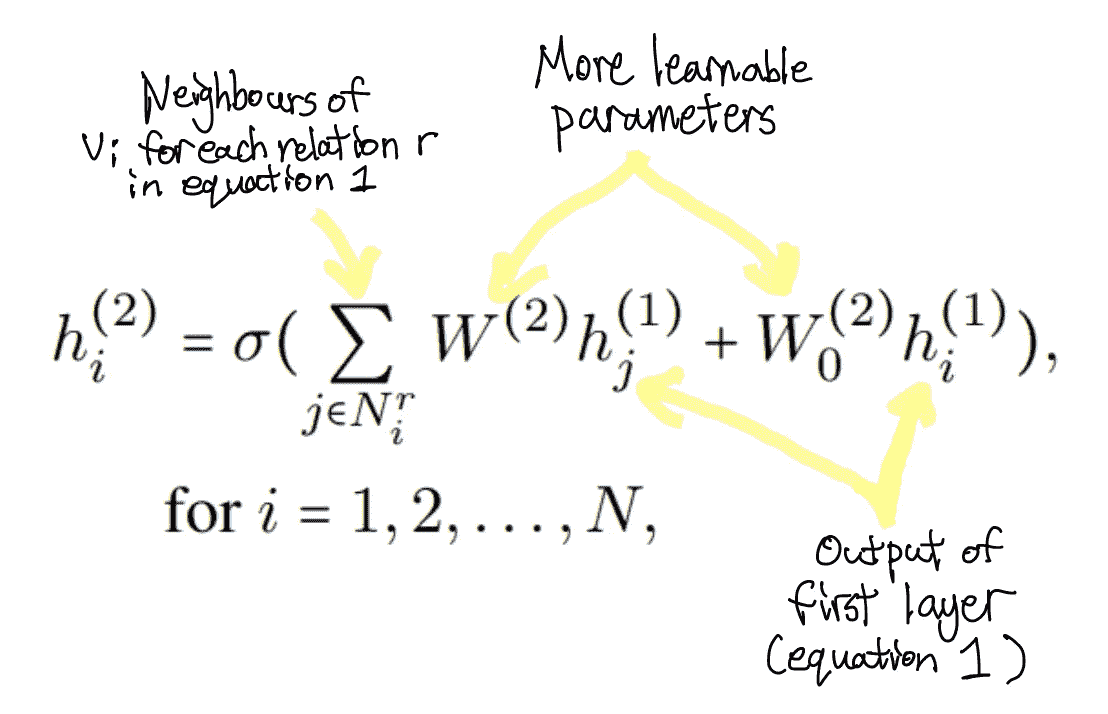 Neighbours of
vi for each relation r
in equation 1
More learnable
parameters
h_i^{(2)} = σ( ∑_{j∈N_i^r} W^{(2)} h_j^{(1)} + W_0^{(2)} h_i^{(1)} ),
for i = 1, 2, . . . , N,
Output of
first layer
(equation 1)